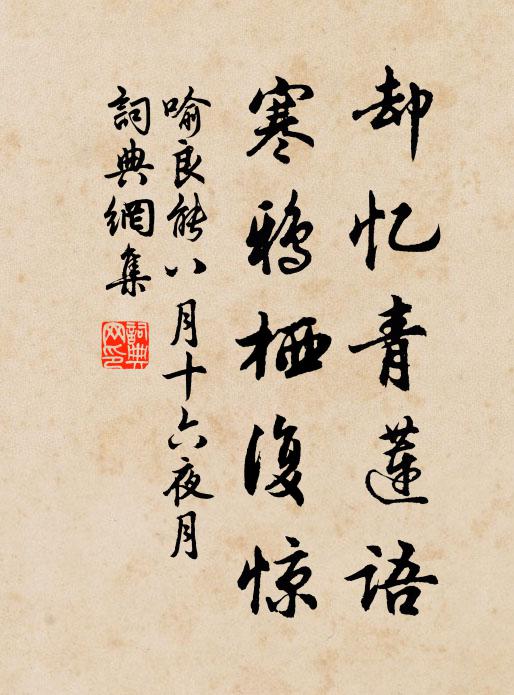 却忆青莲語
寒鸦栖復惊
喻良能八月十六夜月
詞典網集
詞典網印